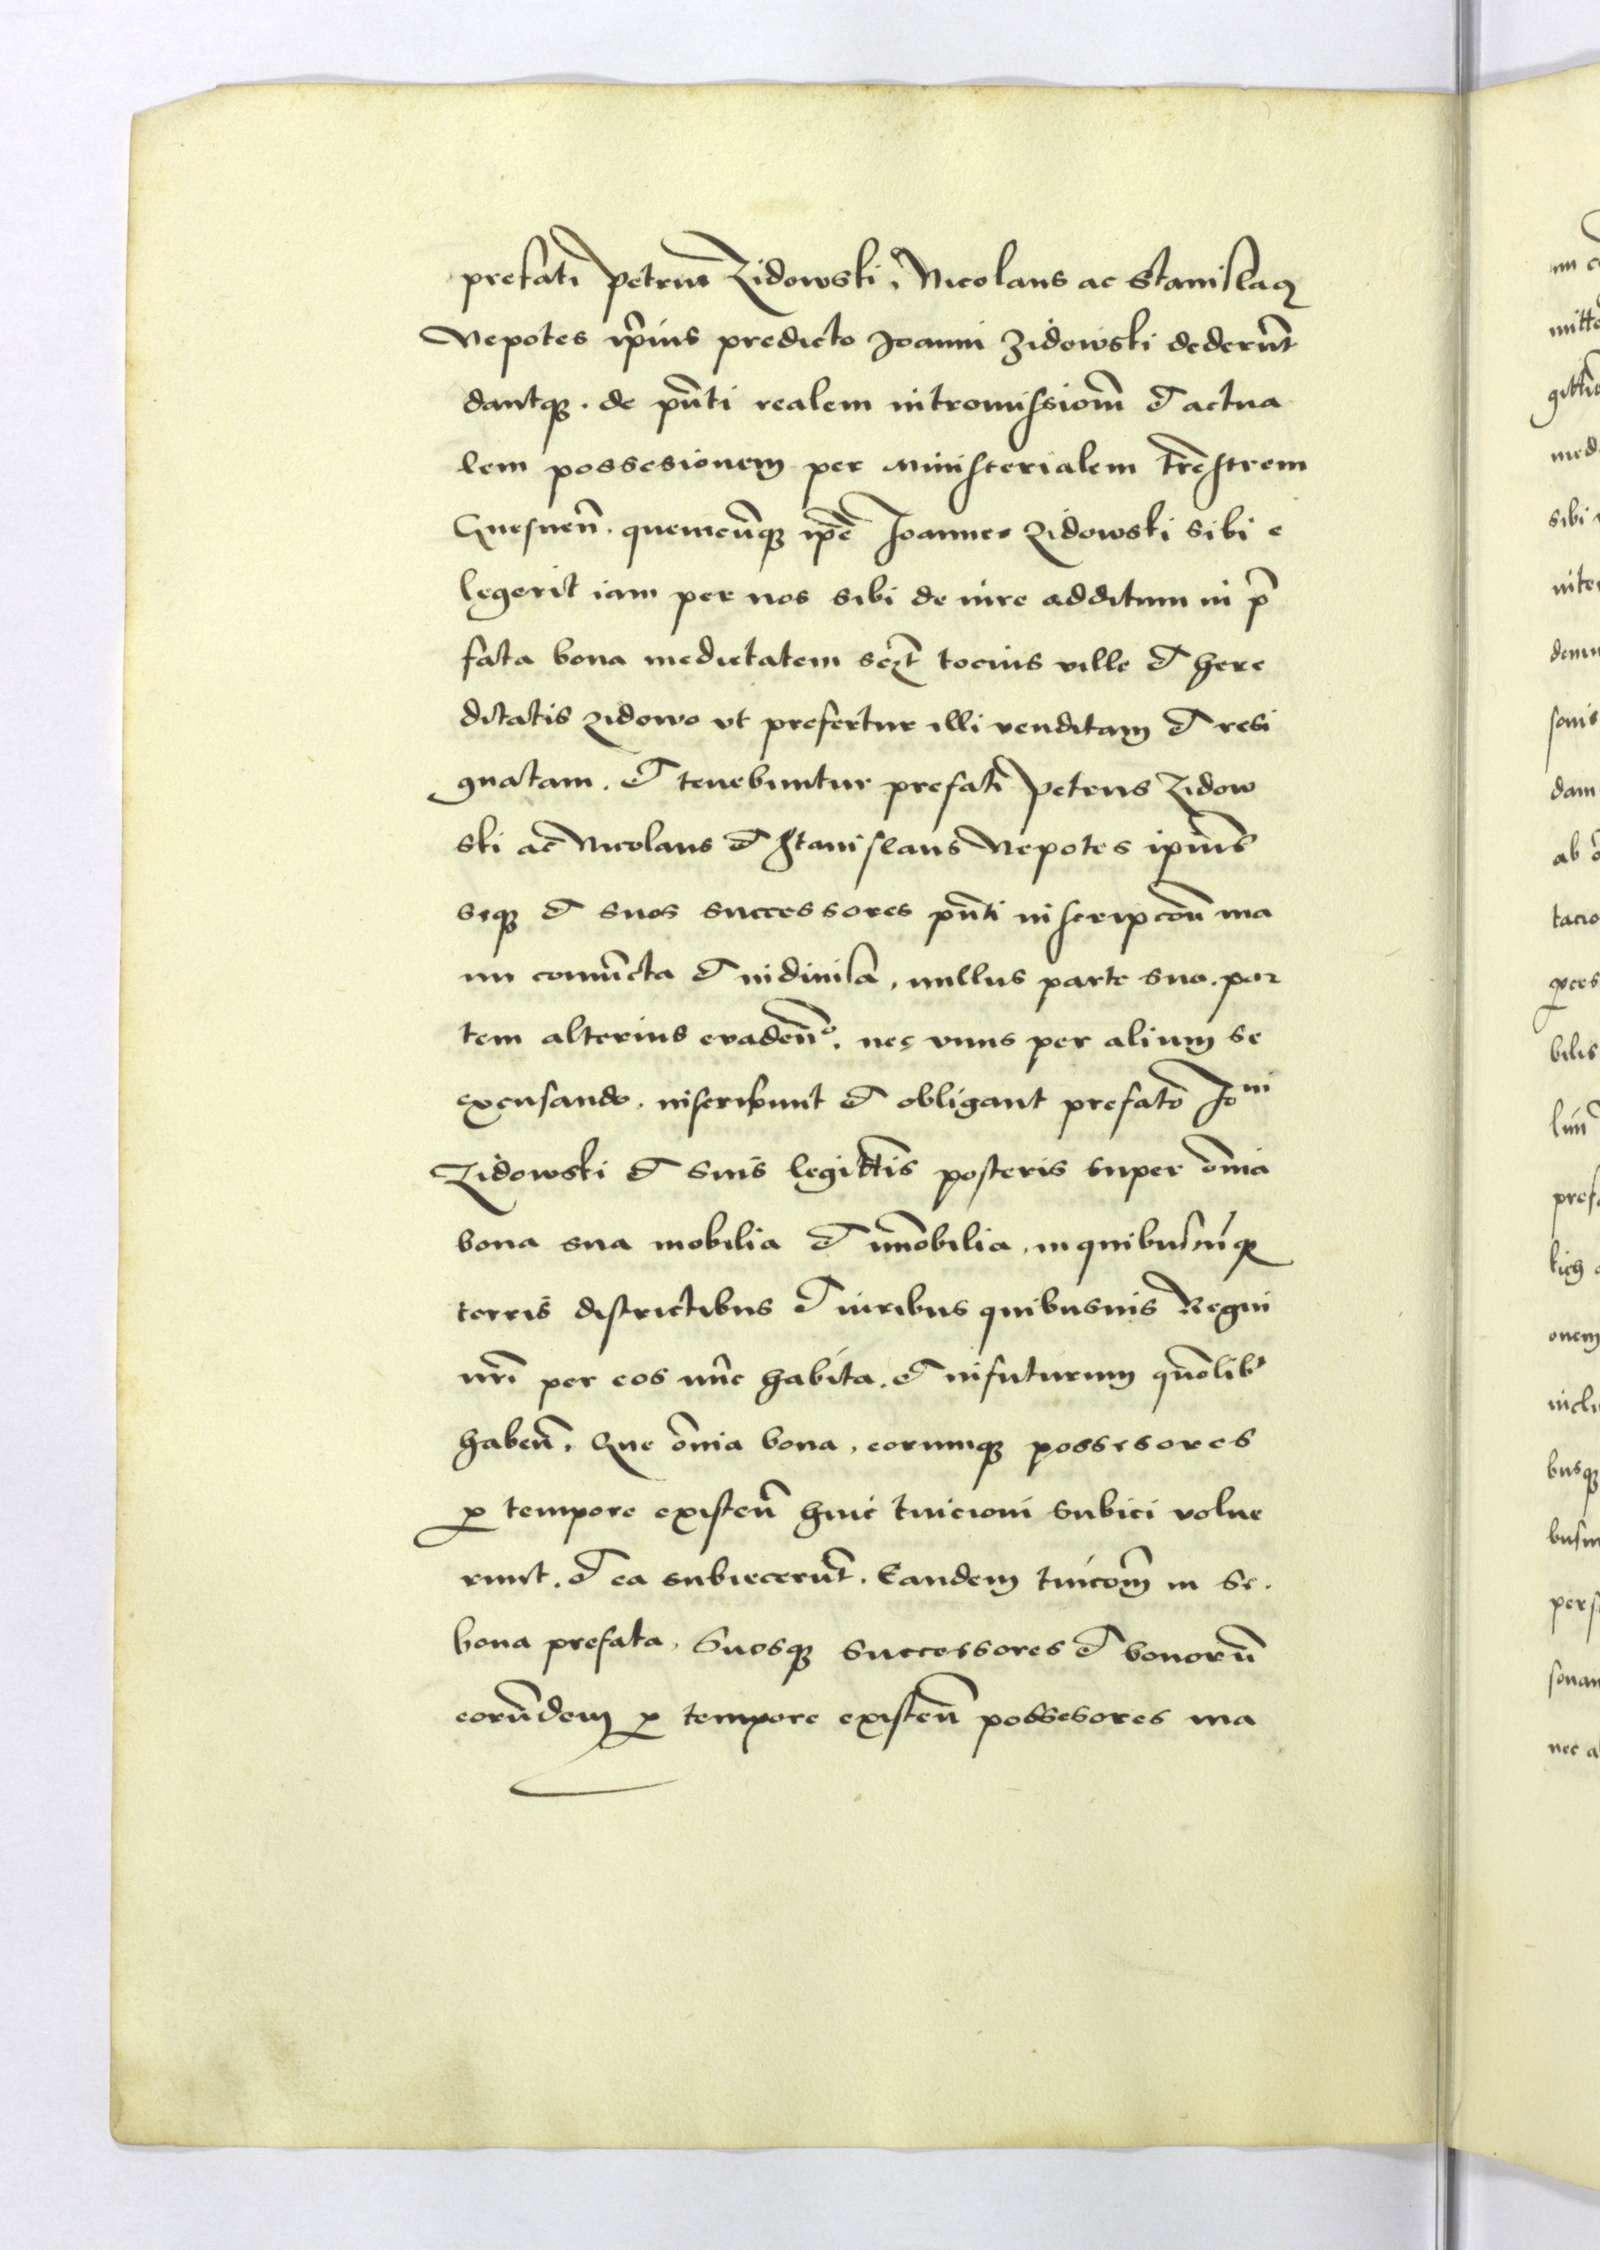 prefati Petrus Zidowski, Nicolaus ac Stanislaꝰ
Nepotes ip̄ius predicto Joanni Zidowski dederūt
dantqꝫ. de pn̄ti realem intromissionē et actua
lem possesionem per Ministerialem trr̄estrem
Gnesnen̄. quemcūqꝫ ip̄e Joannes Zidowski sibi e
legerit iam per nos sibi de iure additum in p̄
fata bona medietatem sczt̄ tocius ville et here
ditatis Zidowo vt prefertur illi venditam et resi
gnatam. et tenebuntur prefati Petrus Zidow
ski ac Nicolaus et Stanislaus Nepotes ip̄ius
seqꝫ et suos successores pn̄ti inscripcōn̄ ma
nu coniūcta et indiuisa, nullus parte sua. par
tem alterius evaden̄º. nec vnus per alium se
excusando. inscribunt et obligant prefato Joⁿⁱ
Zidowski et suis legitt̄is posteris super om̄ia
bona sua mobilia et im̄obilia, in quibuscūqꝫ
terris districtibus et iuribus quibusuis Regni
nr̄i per eos nūc habita. et infuturum quōlibꝫ
haben̄. Que om̄ia bona, eorumqꝫ possesores
ꝓ tempore existen̄ huic tuicioni subici volue
runt. et ea subiecerūt. Eandem tuicōm̄ in se.
bona prefata, Suosqꝫ successores et bonorū
eorūdem ꝓ tempore existen̄ possesores ma